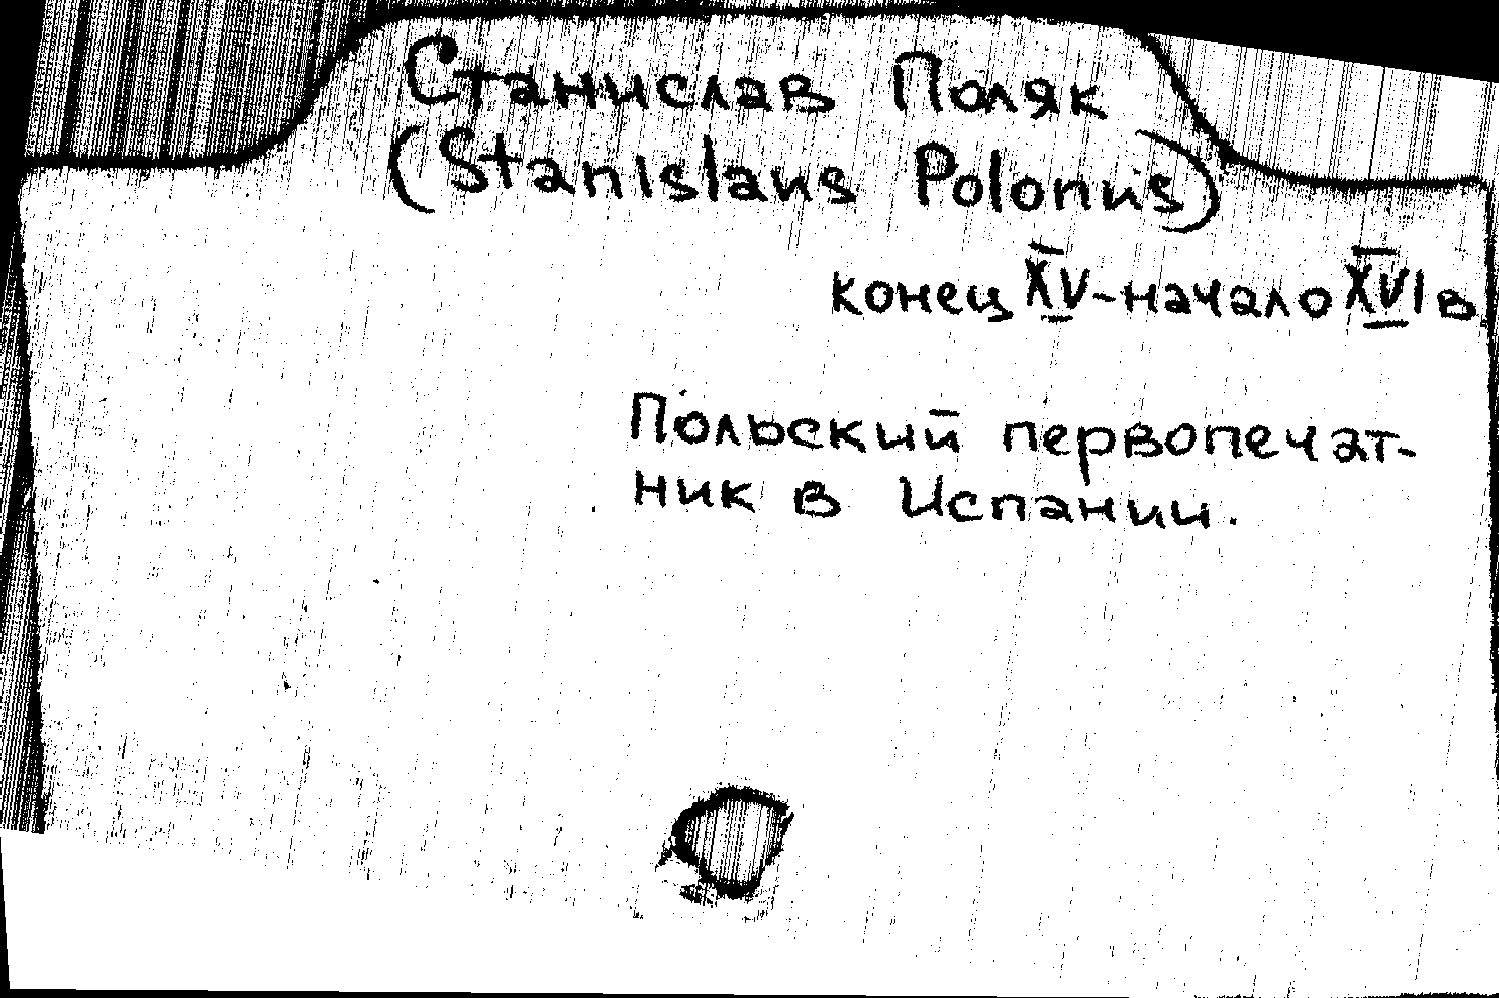 Станислав Поляк
(Stanislaus Polonus)
конец XV-начало XVI в
Польский первопечат-
ник в Испании.